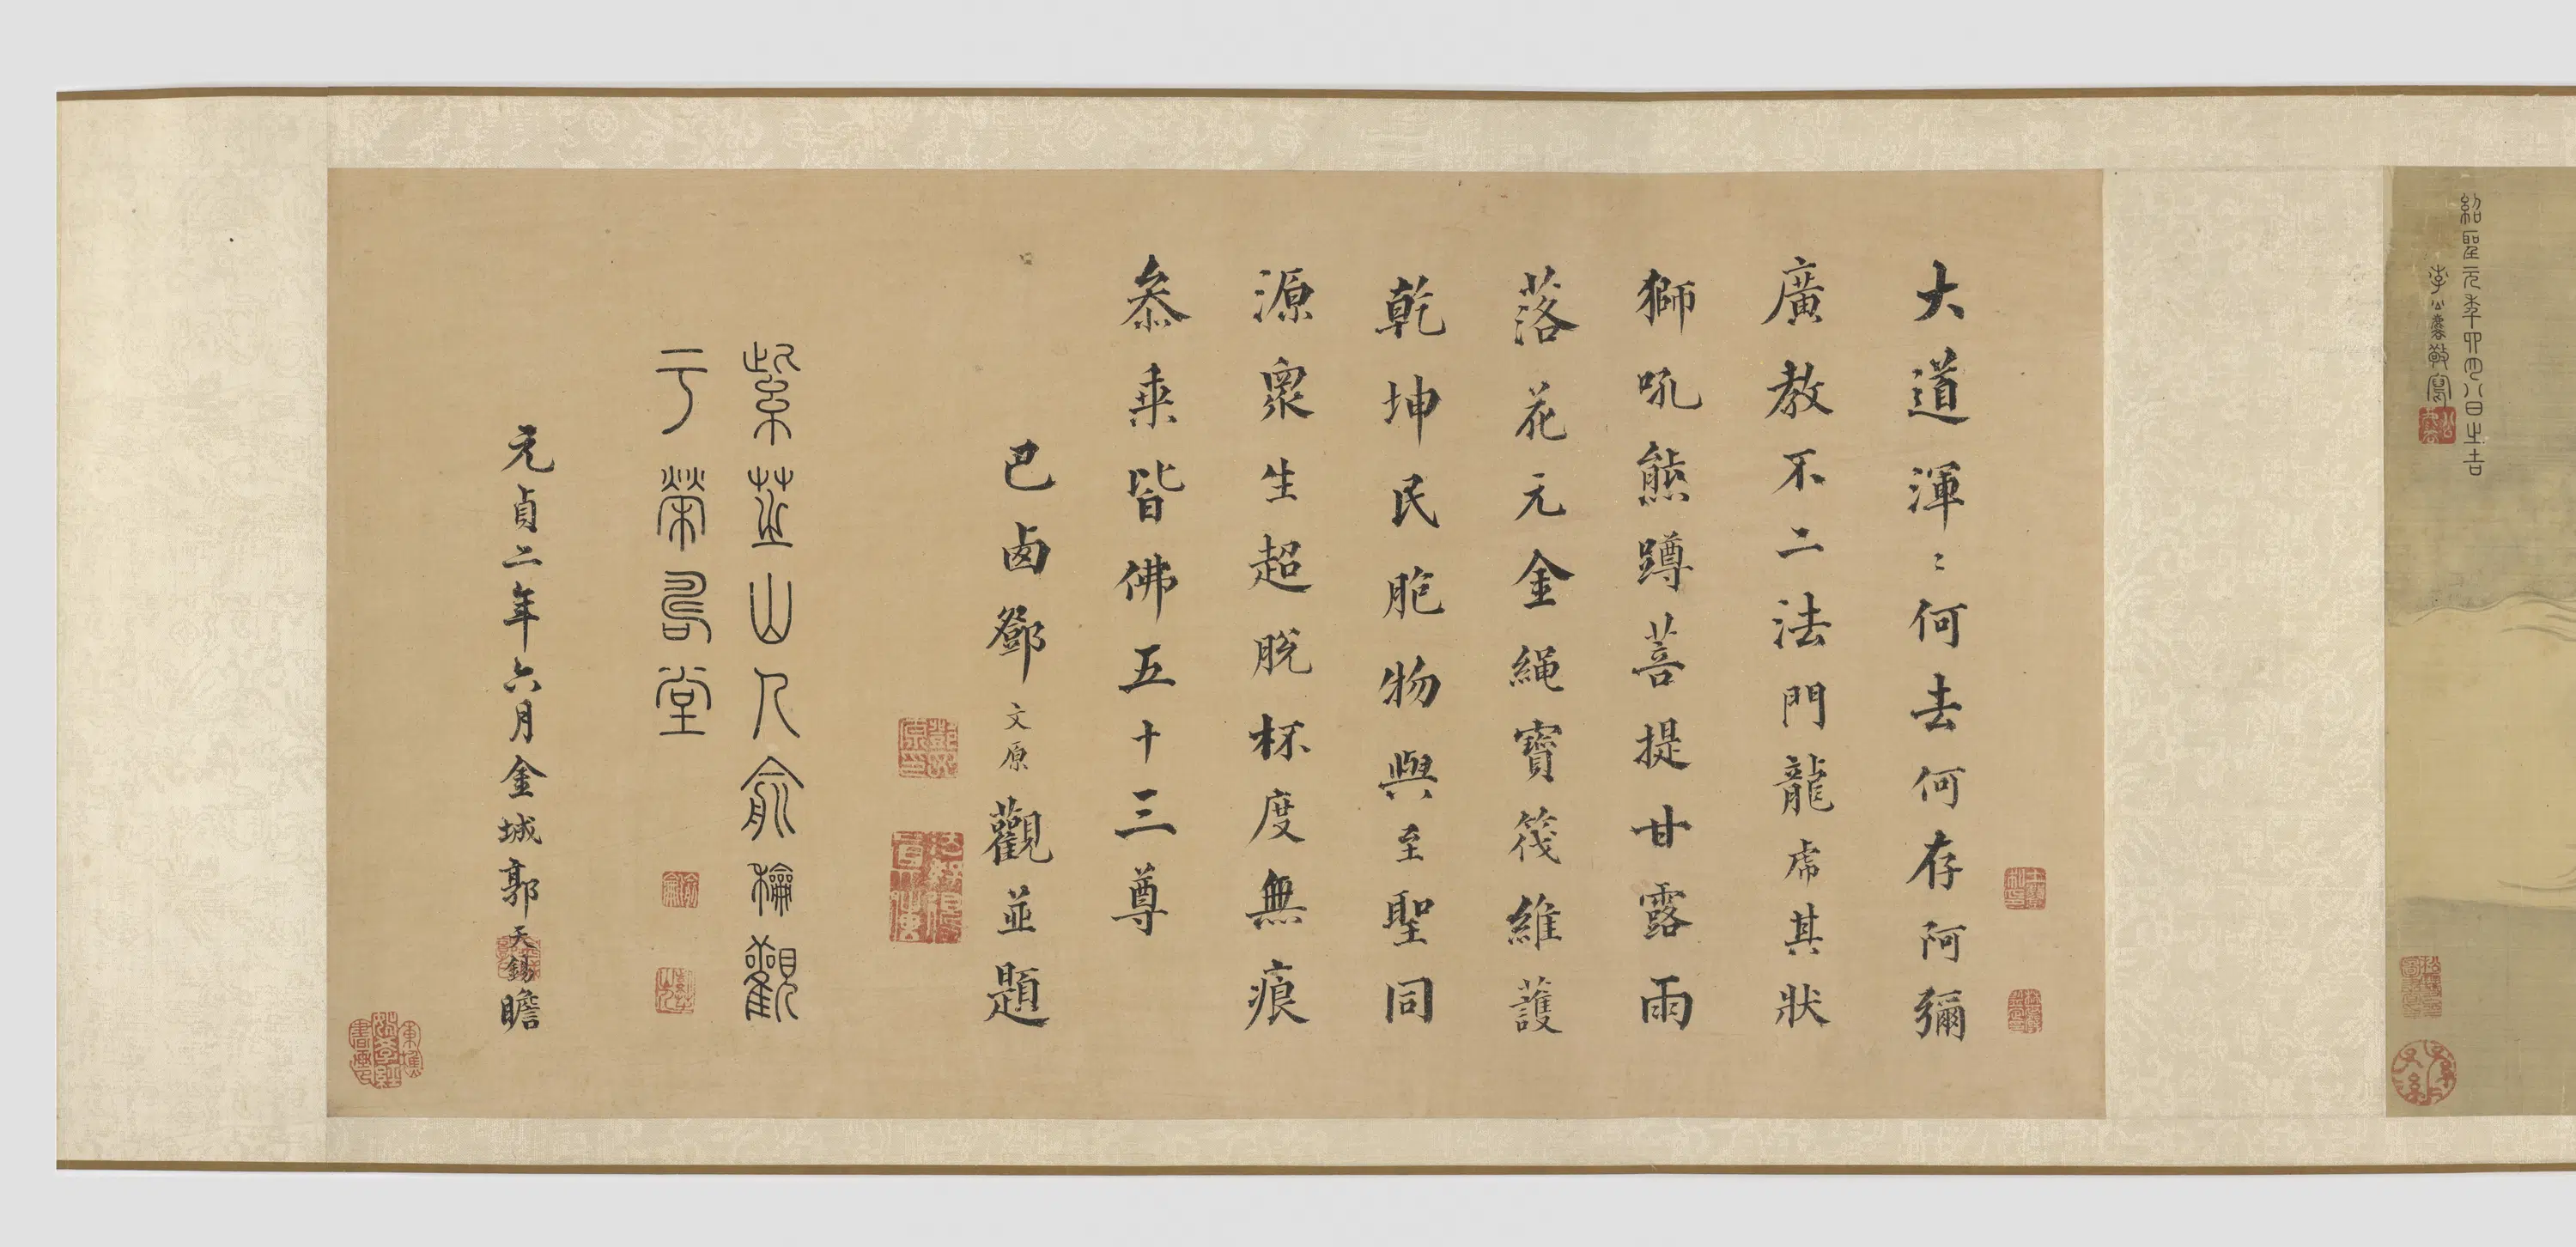 紹聖元年卯四八日生吉
李公麟敬寫
大道渾〻何去何存阿彌
廣教不二法門龍虎其狀
獅吼熊蹲菩提甘露雨
落花元金繩寶筏維護
乾坤民胞物與至聖同
源衆生超脫杯度無痕
叅乘皆佛五十三尊
巴西鄧文原觀並題
紫芝山人俞和觀
于榮局堂
元貞二年六月金城郭天錫瞻